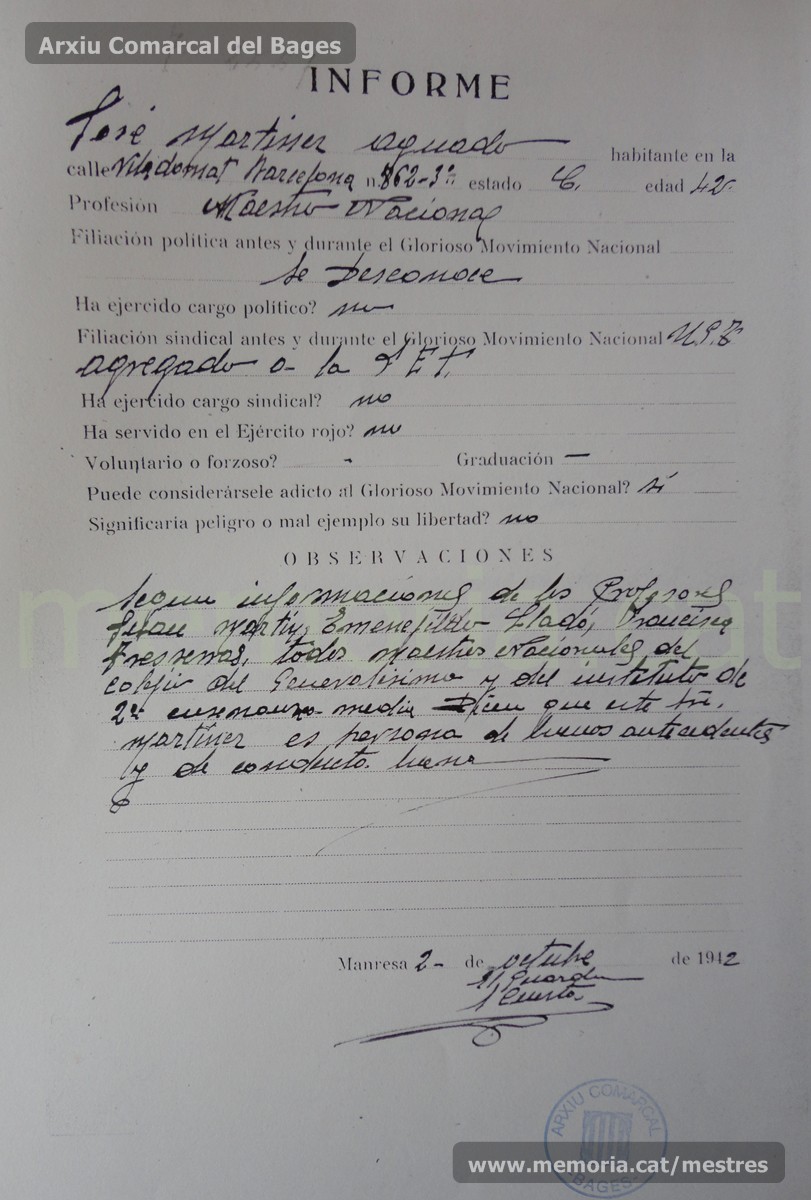 Arxiu Comarcal del Bages
INFORME
José Martinez Aguado habitante en la
calle Viladomat Barcelona n.º 162-3º estado C. edad 42
Profesión Maestro Nacional
Filiación política antes y durante el Glorioso Movimiento Nacional
Se Desconoce
Ha ejercido cargo político? no
Filiación sindical antes y durante el Glorioso Movimiento Nacional
agregado a la
Ha ejercido cargo sindical? no
Ha servido en el Ejército rojo? no
Voluntario o forzoso? - Graduación —
Puede considerársele adicto al Glorioso Movimiento Nacional? si
Significaría peligro o mal ejemplo su libertad? no
OBSERVACIONES
Segun informaciones de los Profesores
Martin, Lladó, Francisca
todos Maestros Nacionales del
colegio del Generalisimo y del instituto de
2ª media Dicen que este Sr.
Martinez es persona de buenos antecedentes
y de conducta buena
Manresa 2- de octubre de 1942
El Guardia
ARXIU COMARCAL
BAGES
www.memoria.cat/mestres